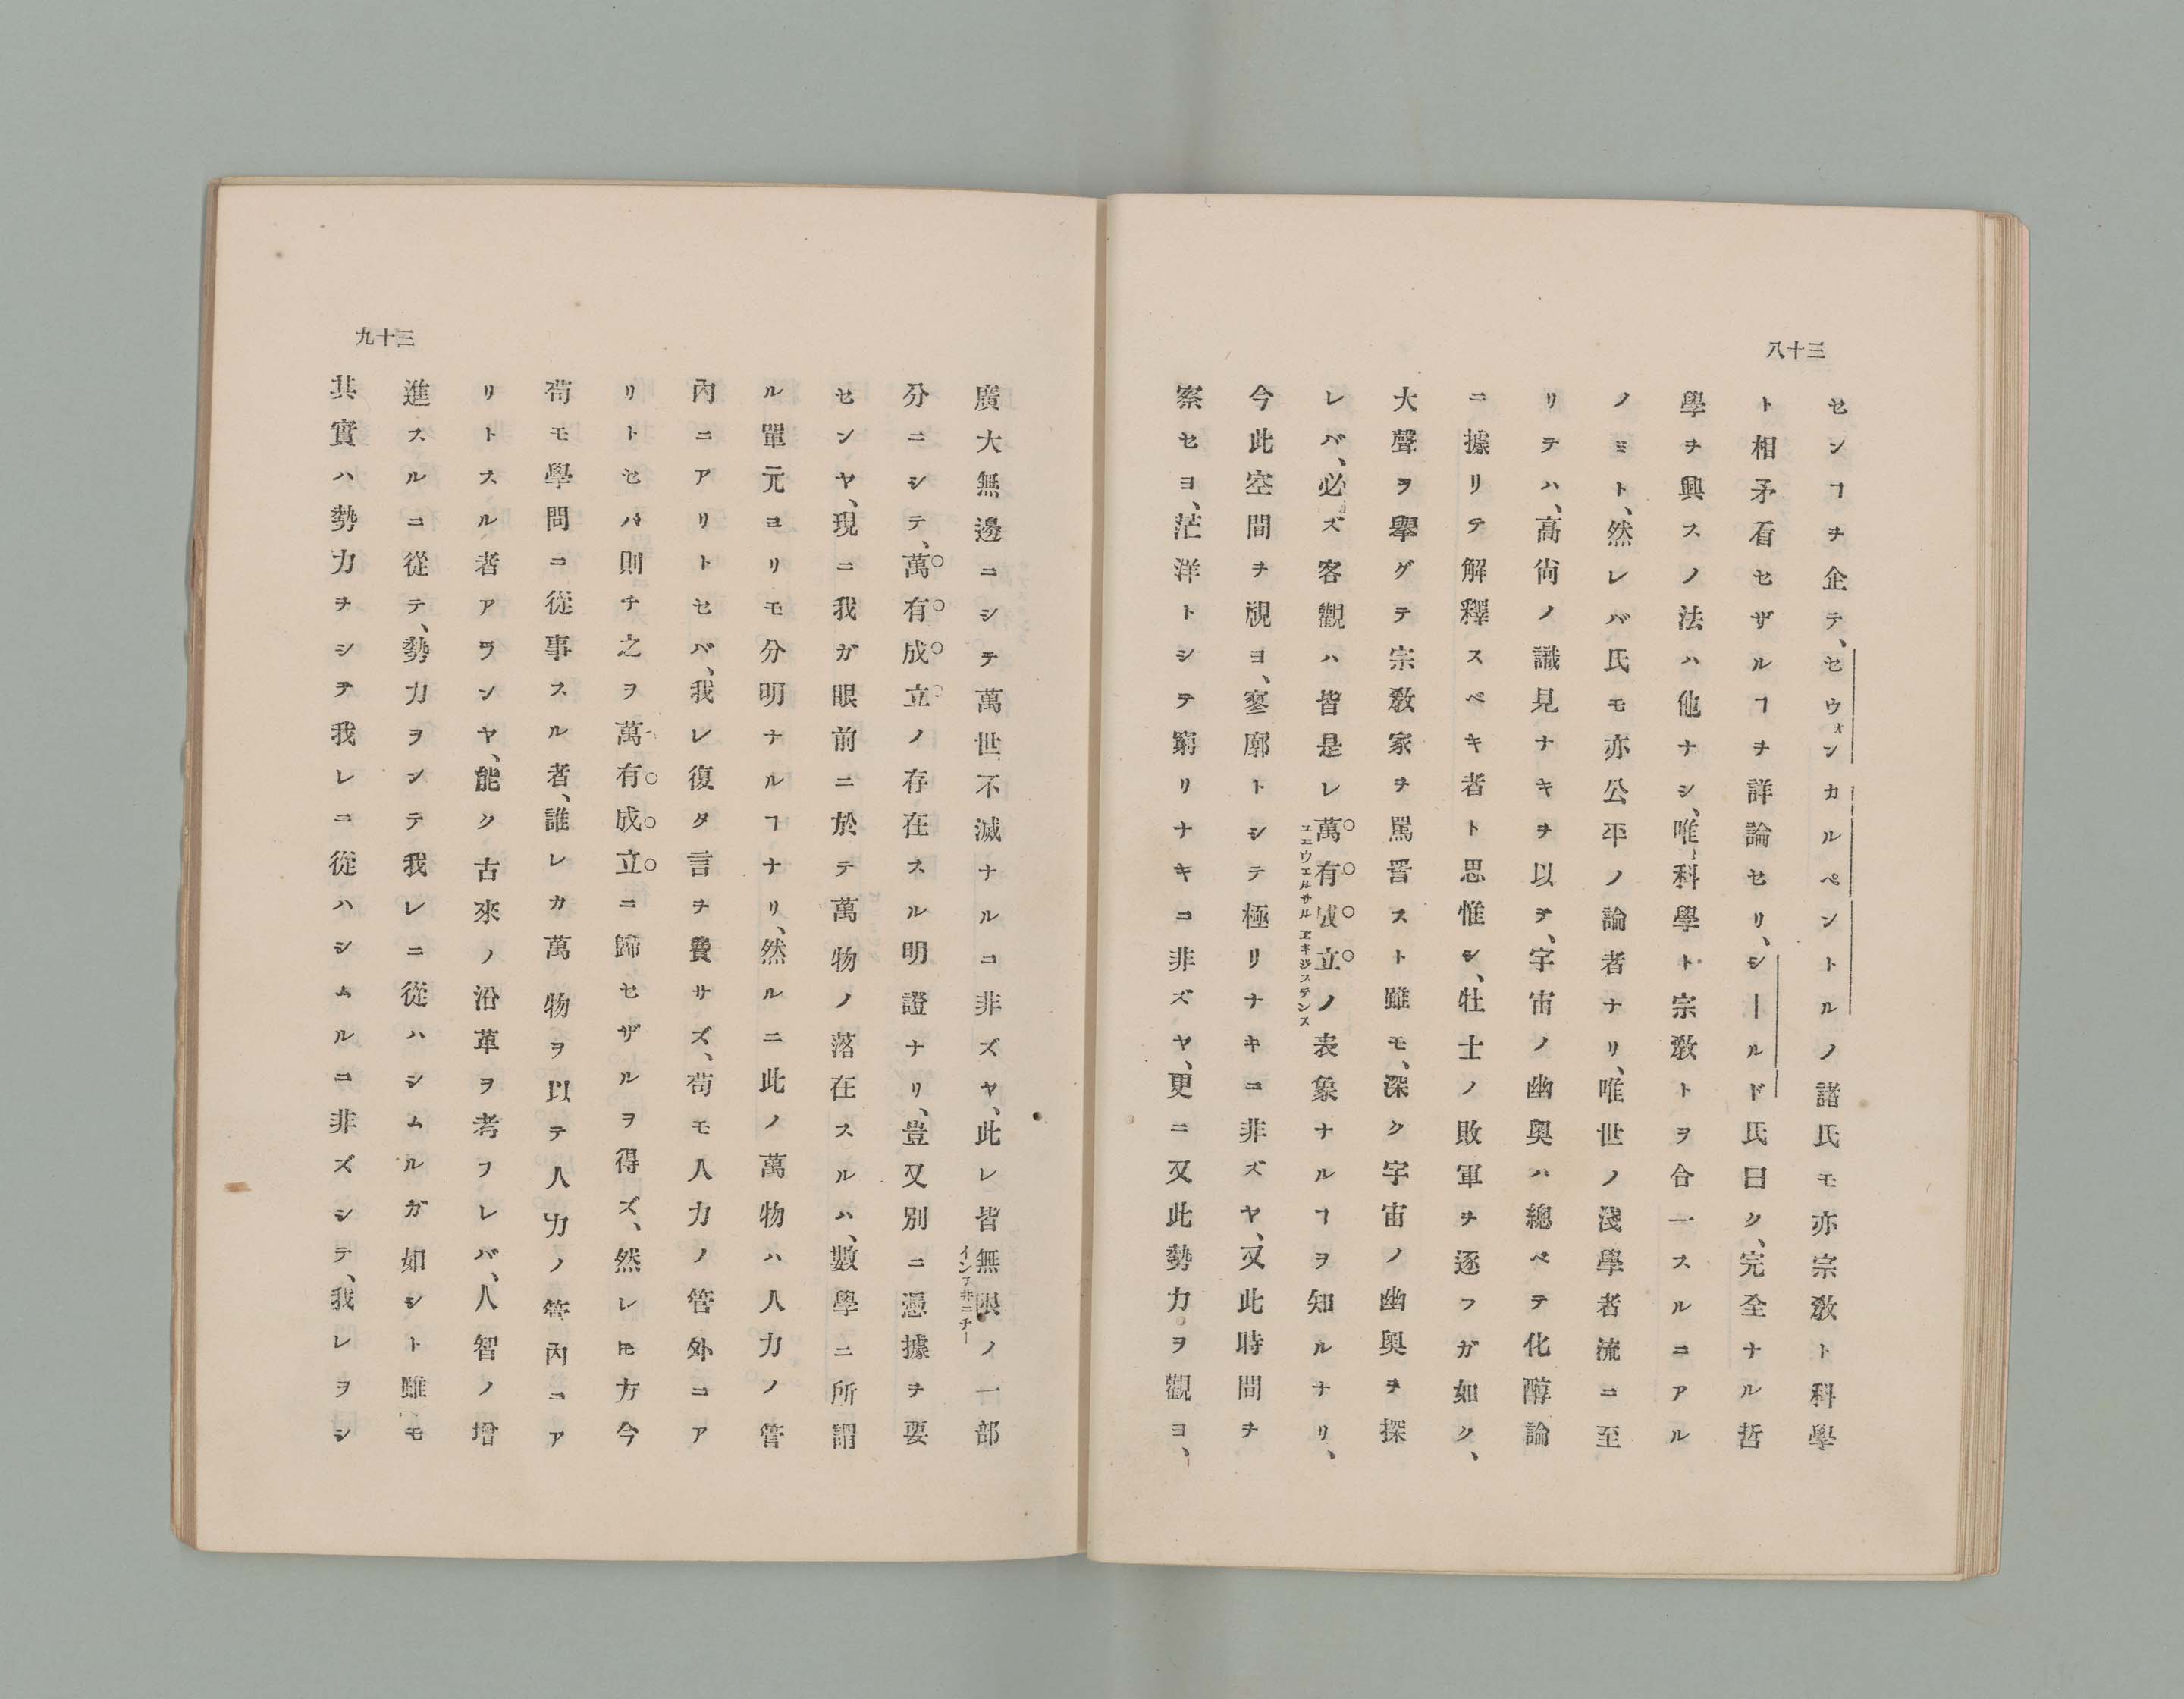 三十八
センヿヲ企テ、セウォンカルペントルノ諸氏モ亦宗敎ト科學
ト相矛看セザルヿヲ詳論セリ、シールド氏曰ク、完全ナル哲
學ヲ興スノ法ハ他ナシ、唯科學ト宗敎トヲ合一スルニアル
ノミト、然レバ氏モ亦公平ノ論者ナリ、唯世ノ淺學者流ニ至
リテハ、高尙ノ識見ナキヲ以テ、宇宙ノ幽奧ハ總ベテ化醇論
ニ據リテ解釋スベキ者ト思惟シ、牡士ノ敗軍ヲ逐フガ如ク、
大聲ヲ擧グテ宗敎家ヲ罵詈スト雖モ、深ク宇宙ノ幽奧ヲ探
レバ、必ズ客觀ハ皆是レ萬有成立ノ表象ナルヿヲ知ルナリ、
ユニウェルサルヱキジステンス
今此空間ヲ視ヨ、寥廓トシテ極リナキニ非ズヤ、又此時間ヲ
察セヨ、茫洋トシテ窮リナキニ非ズヤ、更ニ又此勢力ヲ觀ヨ、
三十九
廣大無邊ニシテ萬世不滅ナルニ非ズヤ、此レ皆無限ノ一部
インフ井ニチー
分ニシテ、萬有成立ノ存在スル明證ナリ、豈又別ニ憑據ヲ要
センヤ、現ニ我ガ眼前ニ於テ萬物ノ落在スルハ、數學ニ所謂
ル單元ヨリモ分明ナルヿナリ、然ルニ此ノ萬物ハ人力ノ管
內ニアリトセバ、我レ復タ言ヲ費サズ、苟モ人力ノ管外ニア
リトセバ則チ之ヲ萬有成立ニ歸セザルヲ得ズ、然レ𪜈方今
苟モ學問ニ從事スル者、誰レカ萬物ヲ以テ人力ノ管內ニア
リトスル者アランヤ、能ク古來ノ沿革ヲ考フレバ、人智ノ增
進スルニ從テ、勢力ヲシテ我レニ從ハシムルガ如シト雖モ
其實ハ勢力ヲシテ我レニ從ハシムルニ非ズシテ、我レヲシ